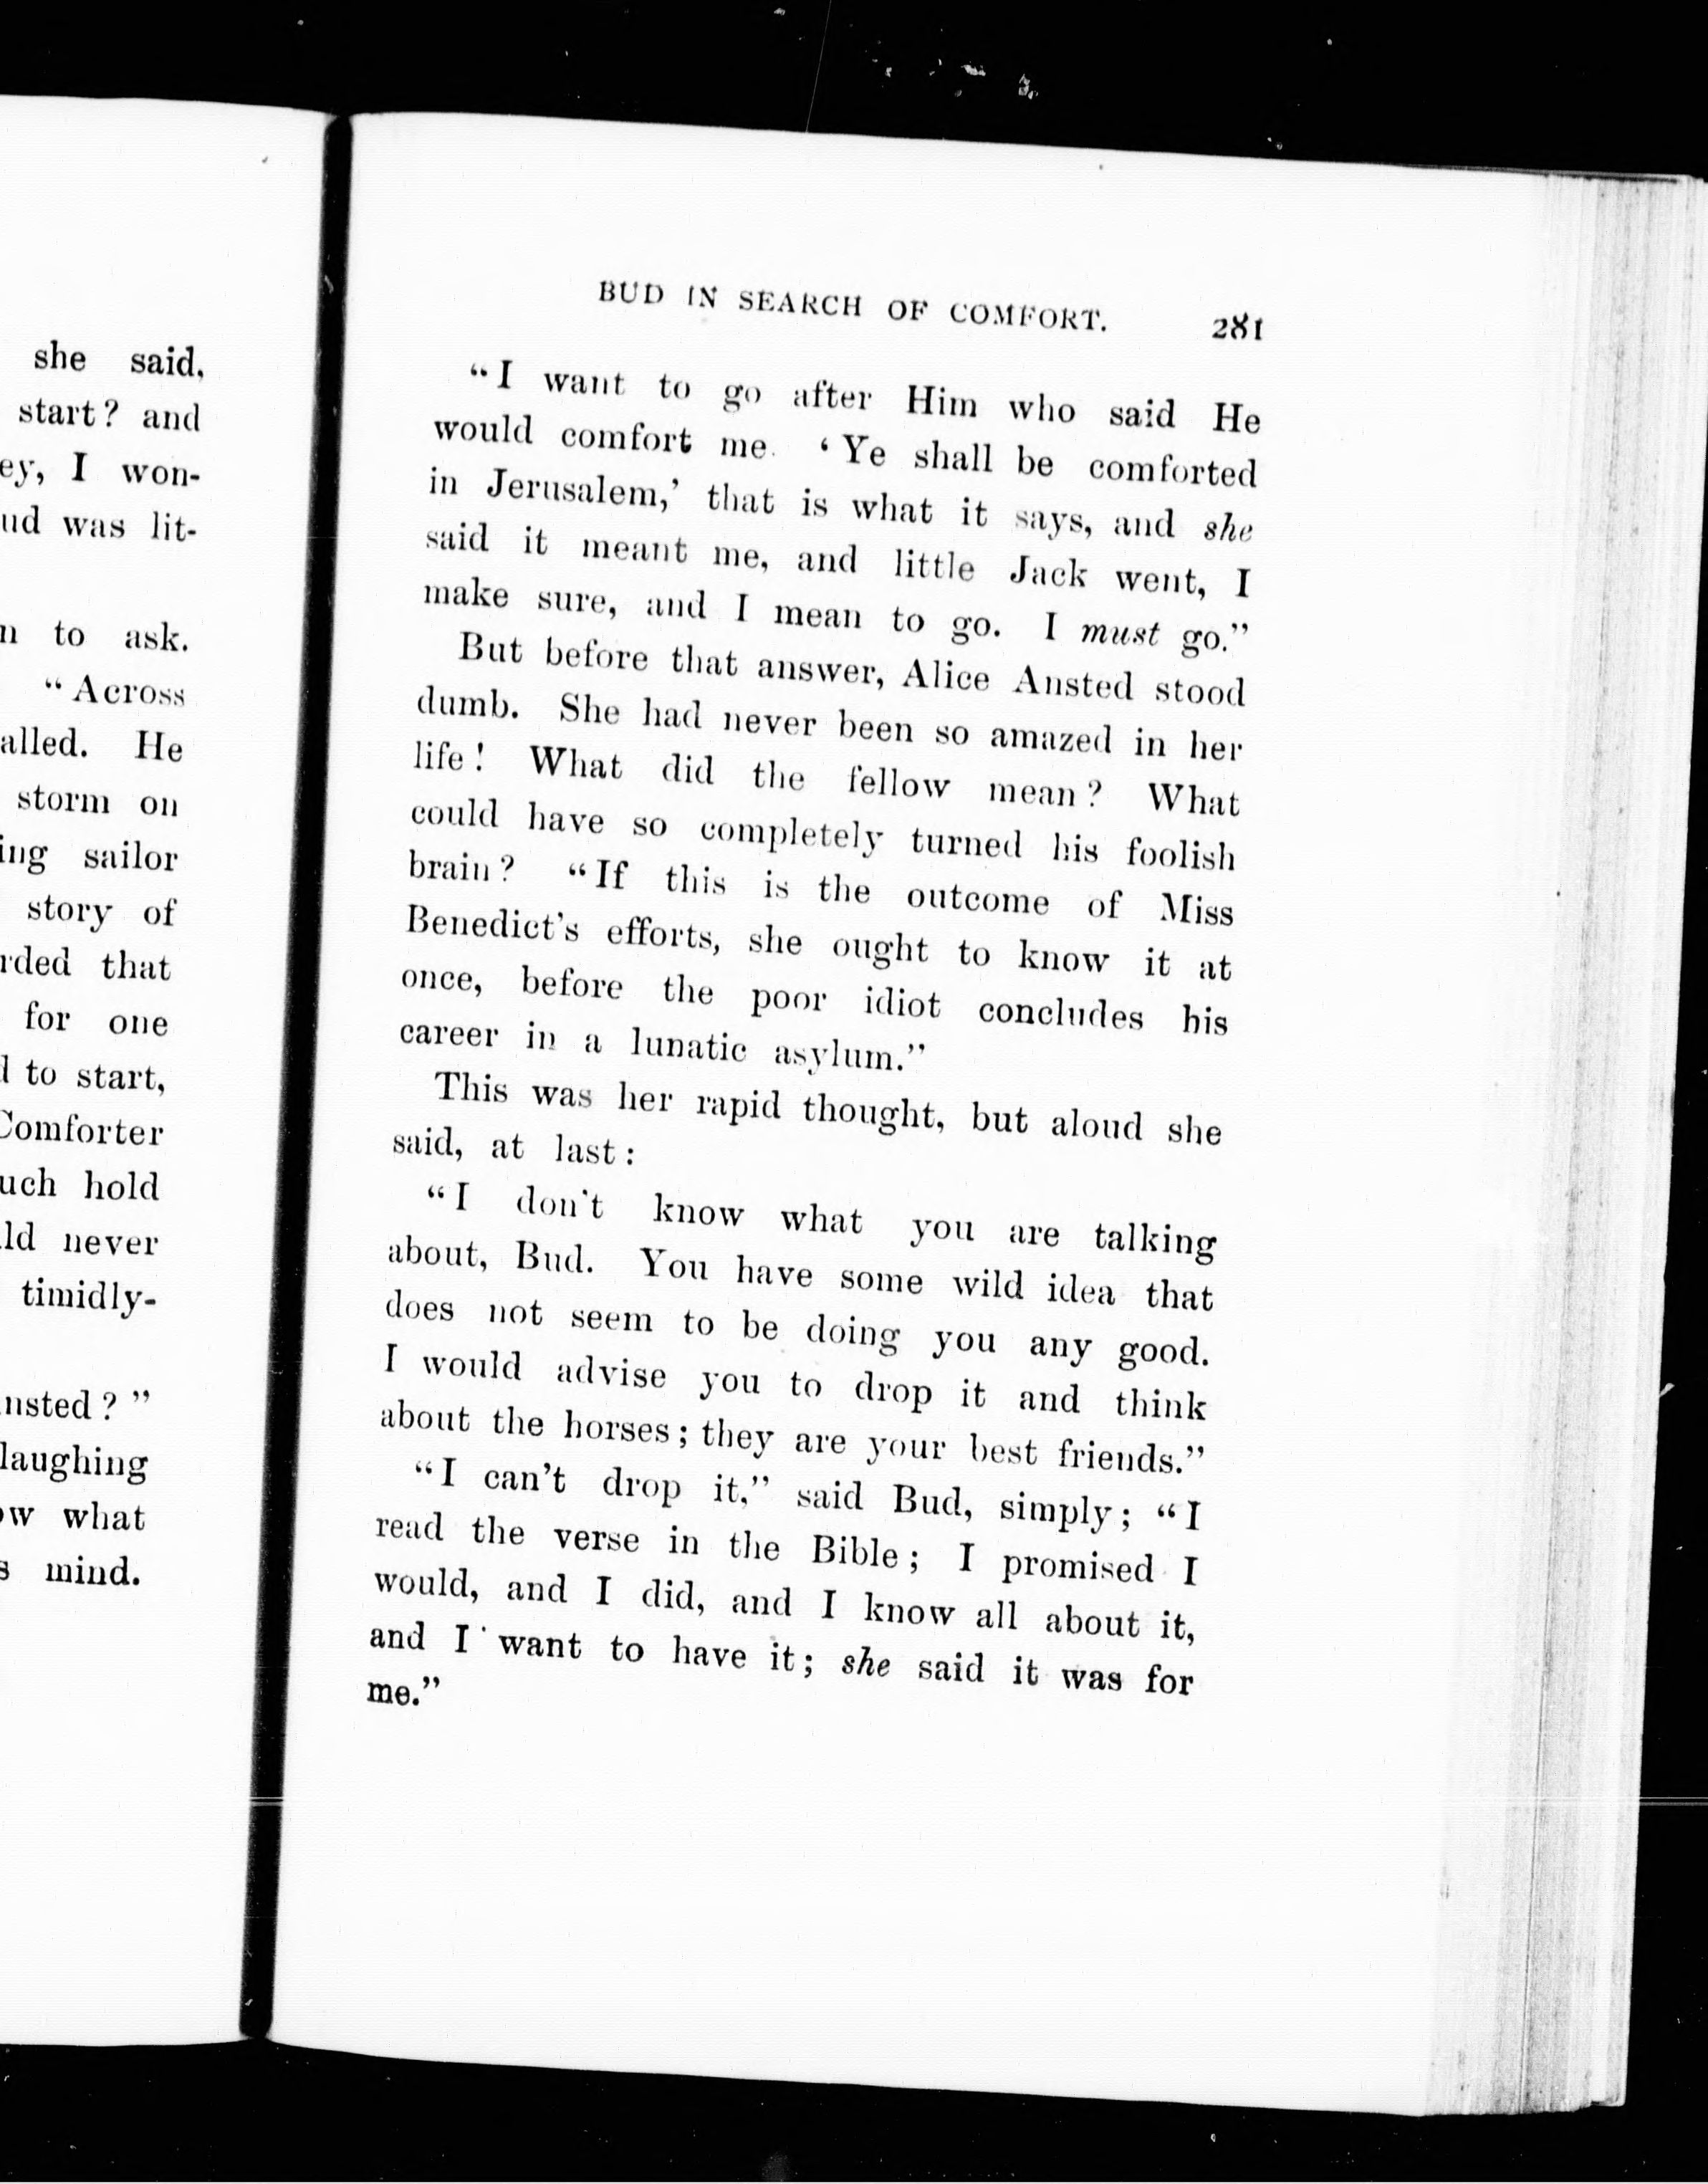 she said,
start? and
ey, I won-
ud was lit-
n to ask.
"Across
alled. He
storm on
ing sailor
story of
rded that
for one
d to start,
Comforter
uch hold
ld never
timidly-
nsted?"
laughing
ow what
s mind.
BUD IN SEARCH OF COMFORT. 281
"I want to go after Him who said He
would comfort me. 'Ye shall be comforted
in Jerusalem,' that is what it says, and she
said it meant me, and little Jack went, I
make sure, and I mean to go. I must go."
But before that answer, Alice Ansted stood
dumb. She had never been so amazed in her
life! What did the fellow mean? What
could have so completely turned his foolish
brain? "If this is the outcome of Miss
Benedict's efforts, she ought to know it at
once, before the poor idiot concludes his
career in a lunatic asylum."
This was her rapid thought, but aloud she
said, at last:
"I don't know what you are talking
about, Bud. You have some wild idea that
does not seem to be doing you any good.
I would advise you to drop it and think
about the horses; they are your best friends."
"I can't drop it," said Bud, simply; "I
read the verse in the Bible; I promised I
would, and I did, and I know all about it,
and I want to have it; she said it was for
me."